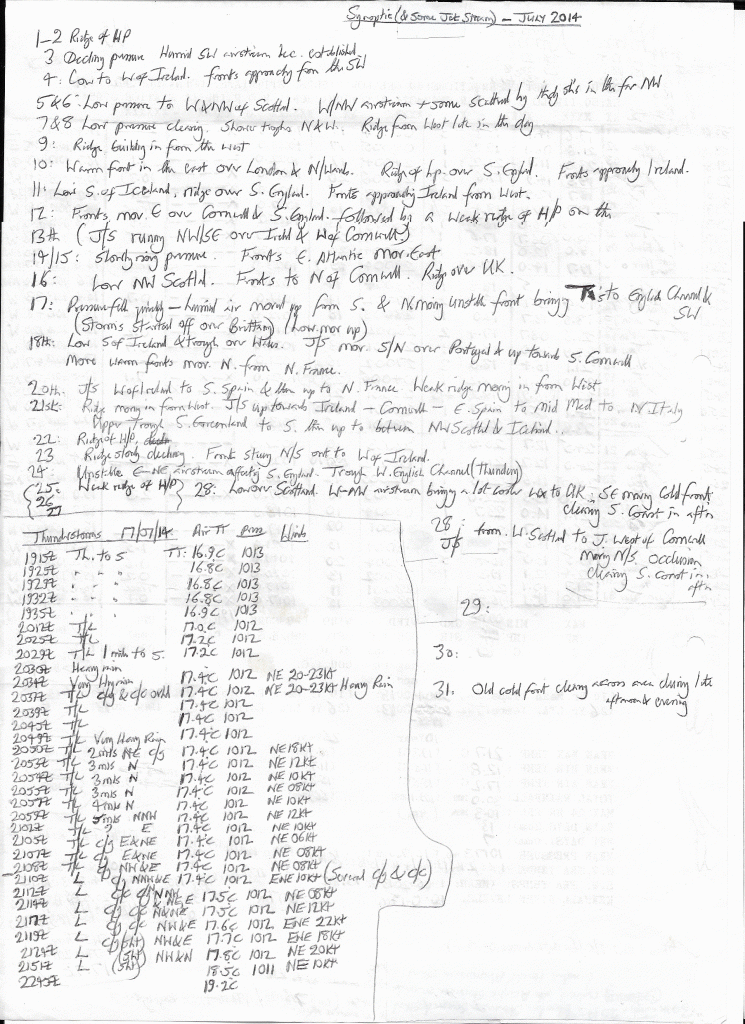 Synoptic (& Some Jet Stream) - JULY 2014
1-2 Ridge of HP
3 Declining pressure Humid SW airstream bec. established
4: Low to W of Ireland. fronts approaching from the SW
5 & 6: Low pressure to W & NW of Scotld. W/NW airstream + some scattered in the far NW
7 & 8 Low pressure clearing. Shower troughs N & W. Ridge from West late in the day
9: Ridge building in from the West
10: Warm front in the east over London & N/Wards. Ridge of hp. over S. England. Fronts approaching Ireland.
11: Low S. of Iceland, ridge over S. England. Fronts approaching Ireland from West.
12: Fronts mov. E over Cornwall & S. England followed by a weak ridge of H/P on the
13th (J/S running NW/SE over Irelnd & W of Cornwall)
14/15: Slowly rising pressure. Fronts E. Atlantic mov. East
16: Low NW Scotld. Fronts to N of Cornwall. Ridge over UK.
17: Pressure fell quickly - humid air moved up from S. & N moving unstable front bringing to English Channel & SW
(Storms started off over Brittany) (Low mov up)
18th: Low S of Ireland & trough over Wales. J/S mov. S/N over Portugal & up towards S. Cornwall
More warm fronts mov. N. from N. France.
20th. J/S W of Ireland to S. Spain & then up to N. France Weak ridge moving in from West
21st: Ridge moving in from West. J/S up towards Ireland - Cornwall - E. Spain to Mid Med to N Italy
Upper trough S. Greenland to S. then up to between NW Scotld & Iceland.
22: Ridge of H/P,
23 Ridge slowly declining. Front N/S out to W of Ireland.
24: Unstable E-NE airstream affecting S. England. Trough W. English Channel (Thundery)
25: Weak ridge of H/P
26
27
28: Low over Scotland. W-NW airstream bringing a lot cooler wx to UK. SE moving cold front
clearing S. Coast in aftn
28: J/S from W. Scotland to J. West of Cornwall
moving N/S. Occlusion
clearing S. coast in
aftn
29:
30:
31. Old cold front clearing across area during late
afternoon & evening
Thunderstorms 17/07/14 Air TT press Winds
1915Z Th. to S TT: 16.9C 1013
1925Z " " " 16.8C 1013
1929Z " " " 16.8C 1013
1932Z " " " 16.8C 1013
1935Z " " " 16.9C 1013
2012Z T/L 17.0C 1012
2025Z T/L 17.2C 1012
2029Z T/L 1 mile to S. 17.2C 1012
2030Z Heavy rain
2034Z Very Hvy rain 17.4C 1012 NE 20-23kt
2037Z T/L c/g & c/c ovhd 17.4C 1012 NE 20-23kt Heavy Rain
2039Z T/L 17.4C 1012
2045Z T/L 17.4C 1012
2049Z T/L Very Heavy Rain 17.4C 1012
2050Z T/L 2 mls NE c/g 17.4C 1012 NE 18kt
2053Z T/L 3 mls N 17.4C 1012 NE 12kt
2054Z T/L 3 mls N 17.4C 1012 NE 10kt
2055Z T/L 3 mls N 17.4C 1012 NE 08kt
2057Z T/L 4 mls N 17.4C 1012 NE 10kt
2059Z T/L 5 mls NNW 17.4C 1012 NE 12kt
2102Z T/L ? E 17.4C 1012 NE 10kt
2105Z T/L c/g E & NE 17.4C 1012 NE 06kt
2107Z T/L c/g E & NE 17.4C 1012 NE 08kt
2108Z T/L c/g NW & E 17.4C 1012 NE 08kt
2110Z L c/g NNW & E 17.4C 1012 ENE 10kt (Several c/g & c/c)
2112Z L c/c c/g NNW 17.5C 1012 NE 08kt
2114Z L c/g c/c N & NE 17.5C 1012 NE 12kt
2117Z L c/g c/c NW & E 17.6C 1012 ENE 22kt
2119Z L c/g (sht) NW & E 17.7C 1012 ENE 18kt
2124Z L (sht) NW & N 17.8C 1012 NE 20kt
2151Z L (sht) 18.5C 1011 NE 10kt
2245Z 19.2C